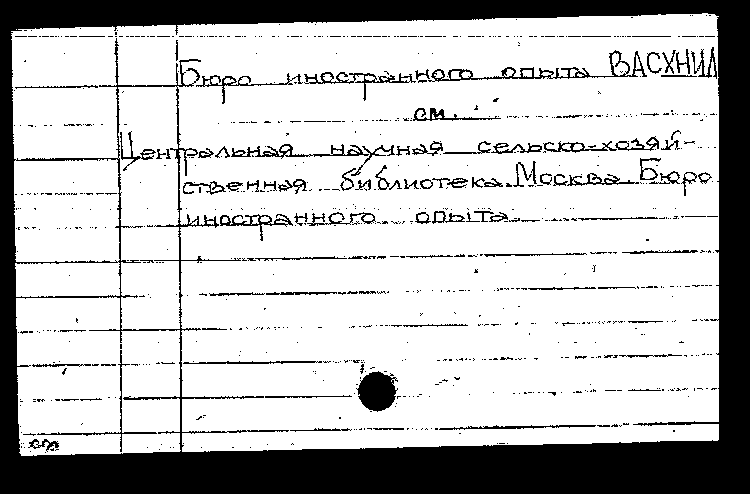 Бюро иностранного опыта ВАСХНИЛ
см.
Центральная научная сельско-хозяй-
ственная библиотека. Москва. Бюро
иностранного опыта.